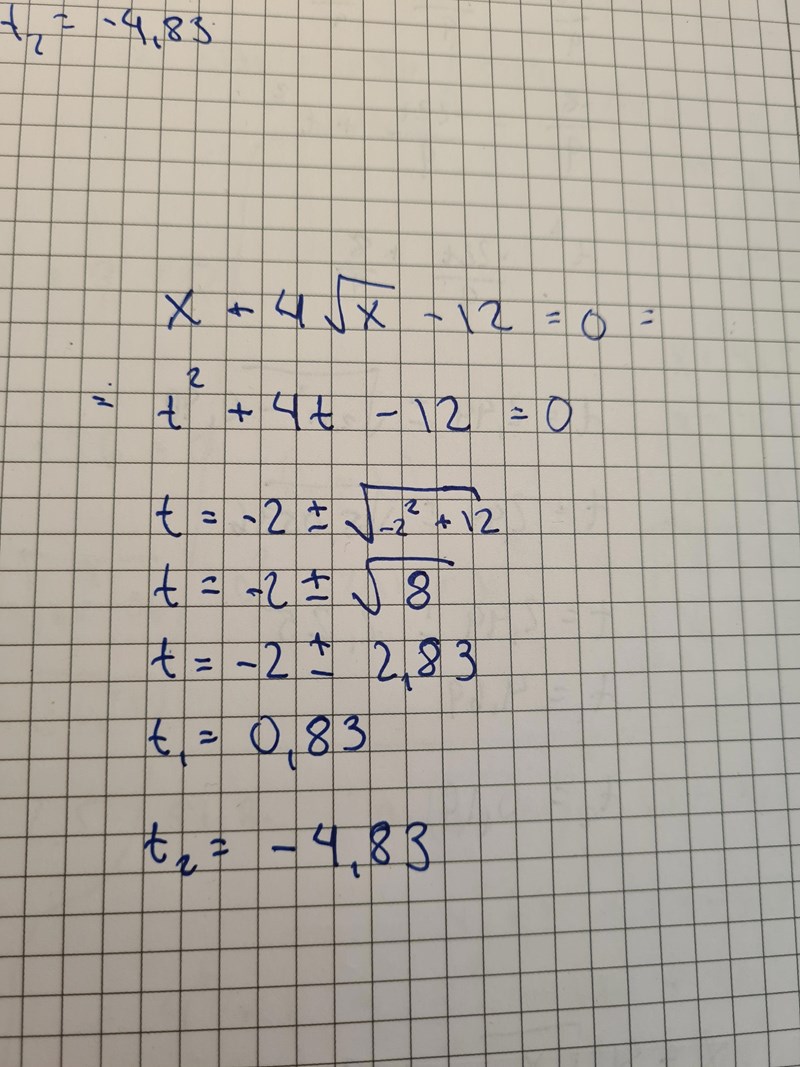 t₂ = -4,83
x + 4√x - 12 = 0 =
= t² + 4t - 12 = 0
t = -2 ± √(-2² + 12)
t = -2 ± √8
t = -2 ± 2,83
t₁ = 0,83
t₂ = -4,83